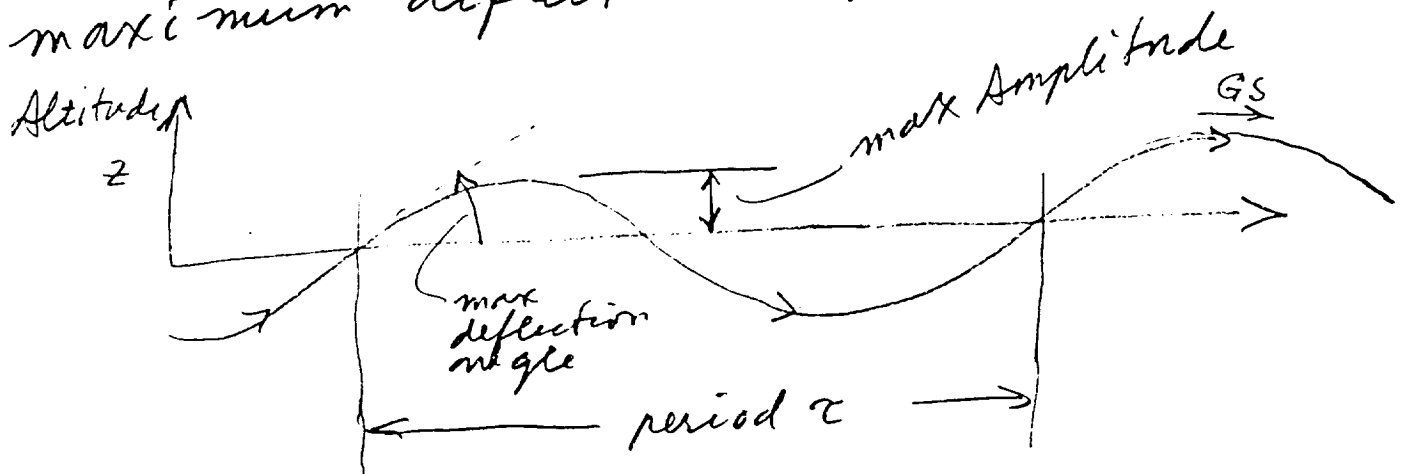 maximum
max Amplitude
GS
Altitude
z
max
deflection
angle
period τ